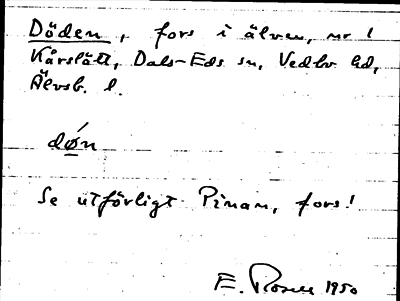 Döden, fors i älven, nr 1
Kårslätt, Dals-Eds sn, Vedbo hd,
Älvsb. l.
dǿn
Se utförligt Pinan, fors!
E. 1950